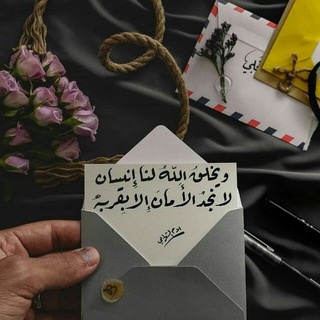 ويخلقُ اللّهُ لنا إنسان
لا نجدُ الأمان إلا بقربهْ